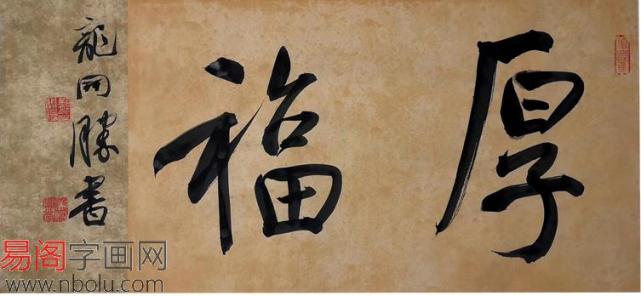 厚福
龍開勝書
易阁字画网
www.nbolu.com